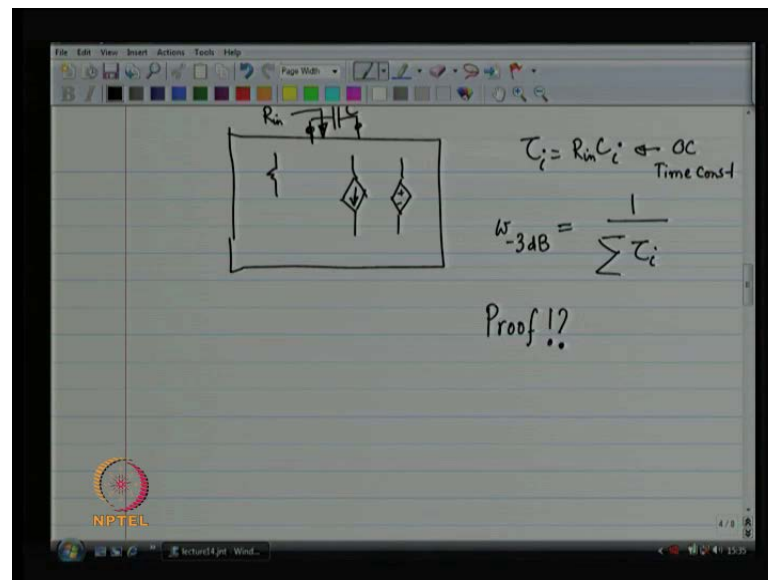 File Edit View Insert Actions Tools Help
Page Width
B I
Rin C
τi = Rin Ci ← OC
Time Const
ω-3dB = 1 / Σ τi
Proof !?
NPTEL
4 / 8
lecture14.jnt - Wind...
15:35